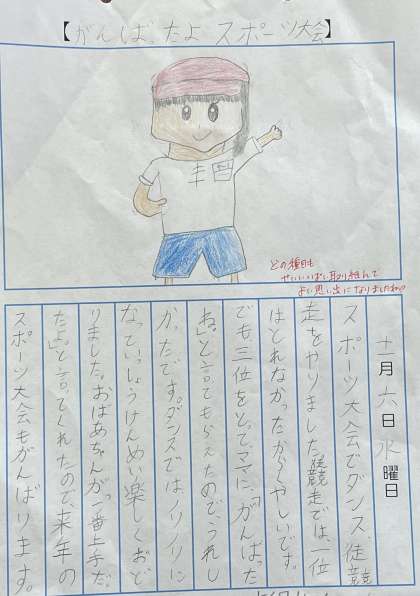 【がんばったよ スポーツ大会】
丰田
どの種目も
せいいっぱい取り組んで
よい思い出になりましたね。
十一月六日水曜日
スポーツ大会でダンス、徒競
走をやりました。徒競走では、一位
はとれなかったからくやしいです。
でも、三位をとってママに、「がんばった
ね。」と言てもらえたので、うれし
かったです。ダンスでは、ノリノリに
なっていっしょうけんめい楽しくおど
りました。おばあちゃんが「一番上手だっ
たよ。」と言ってくれたので、来年の
スポーツ大会もがんばります。